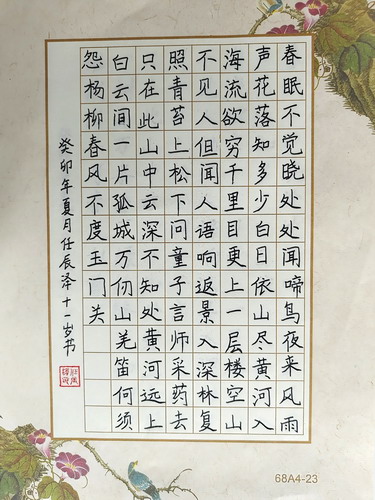 春眠不觉晓处处闻啼鸟夜来风雨
声花落知多少白日依山尽黄河入
海流欲穷千里目更上一层楼空山
不见人但闻人语响返景入深林复
照青苔上松下问童子言师采药去
只在此山中云深不知处黄河远上
白云间一片孤城万仞山羌笛何须
怨杨柳春风不度玉门关
癸卯年夏月任辰泽十一岁书
68A4-23